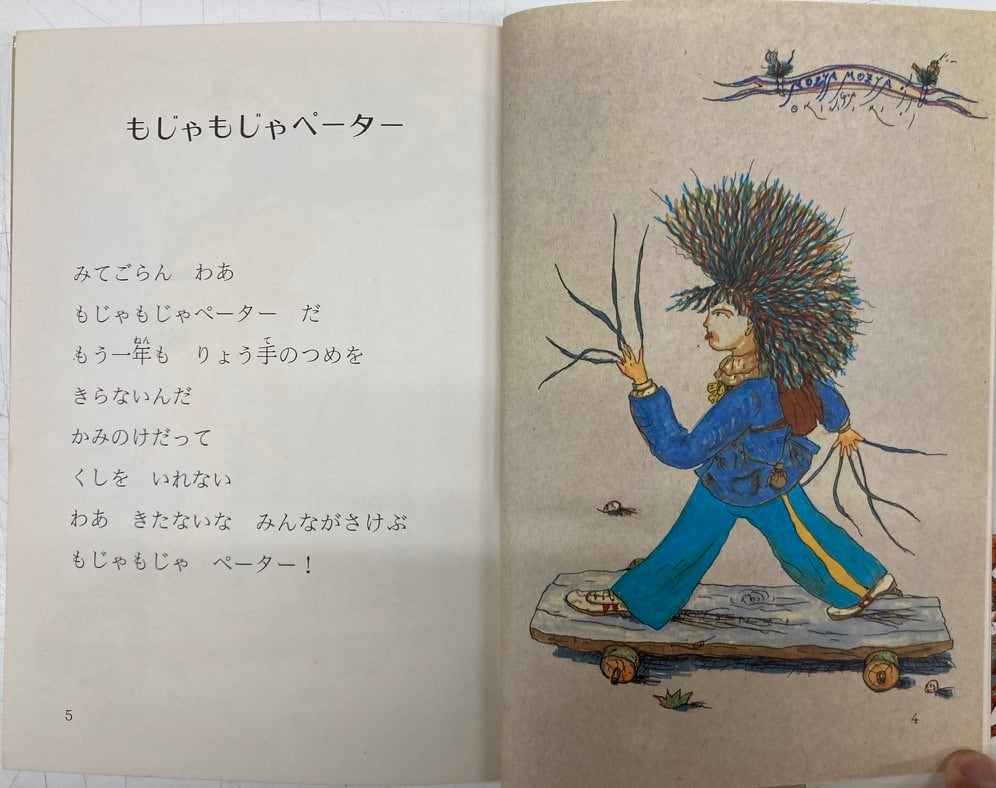 もじゃもじゃペーター
みてごらん　わあ
もじゃもじゃペーター　だ
もう一年も　りょう手のつめを
きらないんだ
かみのけだって
くしを　いれない
わあ　きたないな　みんながさけぶ
もじゃもじゃ　ペーター！
5
MOZYA MOZYA
4